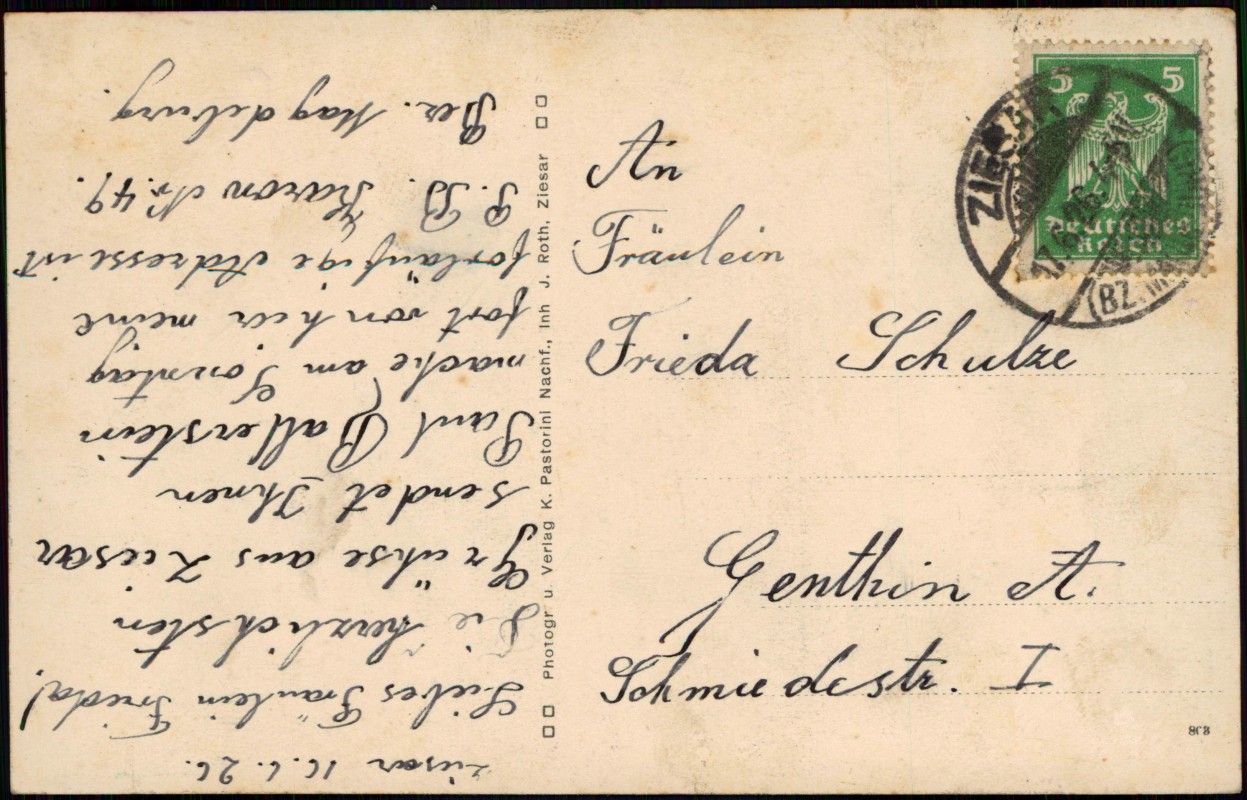 Ziesar 16.6.26.
Liebes Fräulein Frieda!
Die herzlichsten
Grühse aus Ziesar
sendet Ihnen
Paul Ballerstein
mache am Sonntag
fort von hier meine
forläufige Adresse ist
P. B. Karow Nr. 49.
Bez. Magdeburg.
Photogr u. Verlag K. Pastorini Nachf., Inh J. Roth, Ziesar
5 5
Deutsches
Reich
ZIESAR
17.6.26.
(BZ. M
An
Fräulein
Frieda Schulze
Genthin A.
Schmiedestr. I